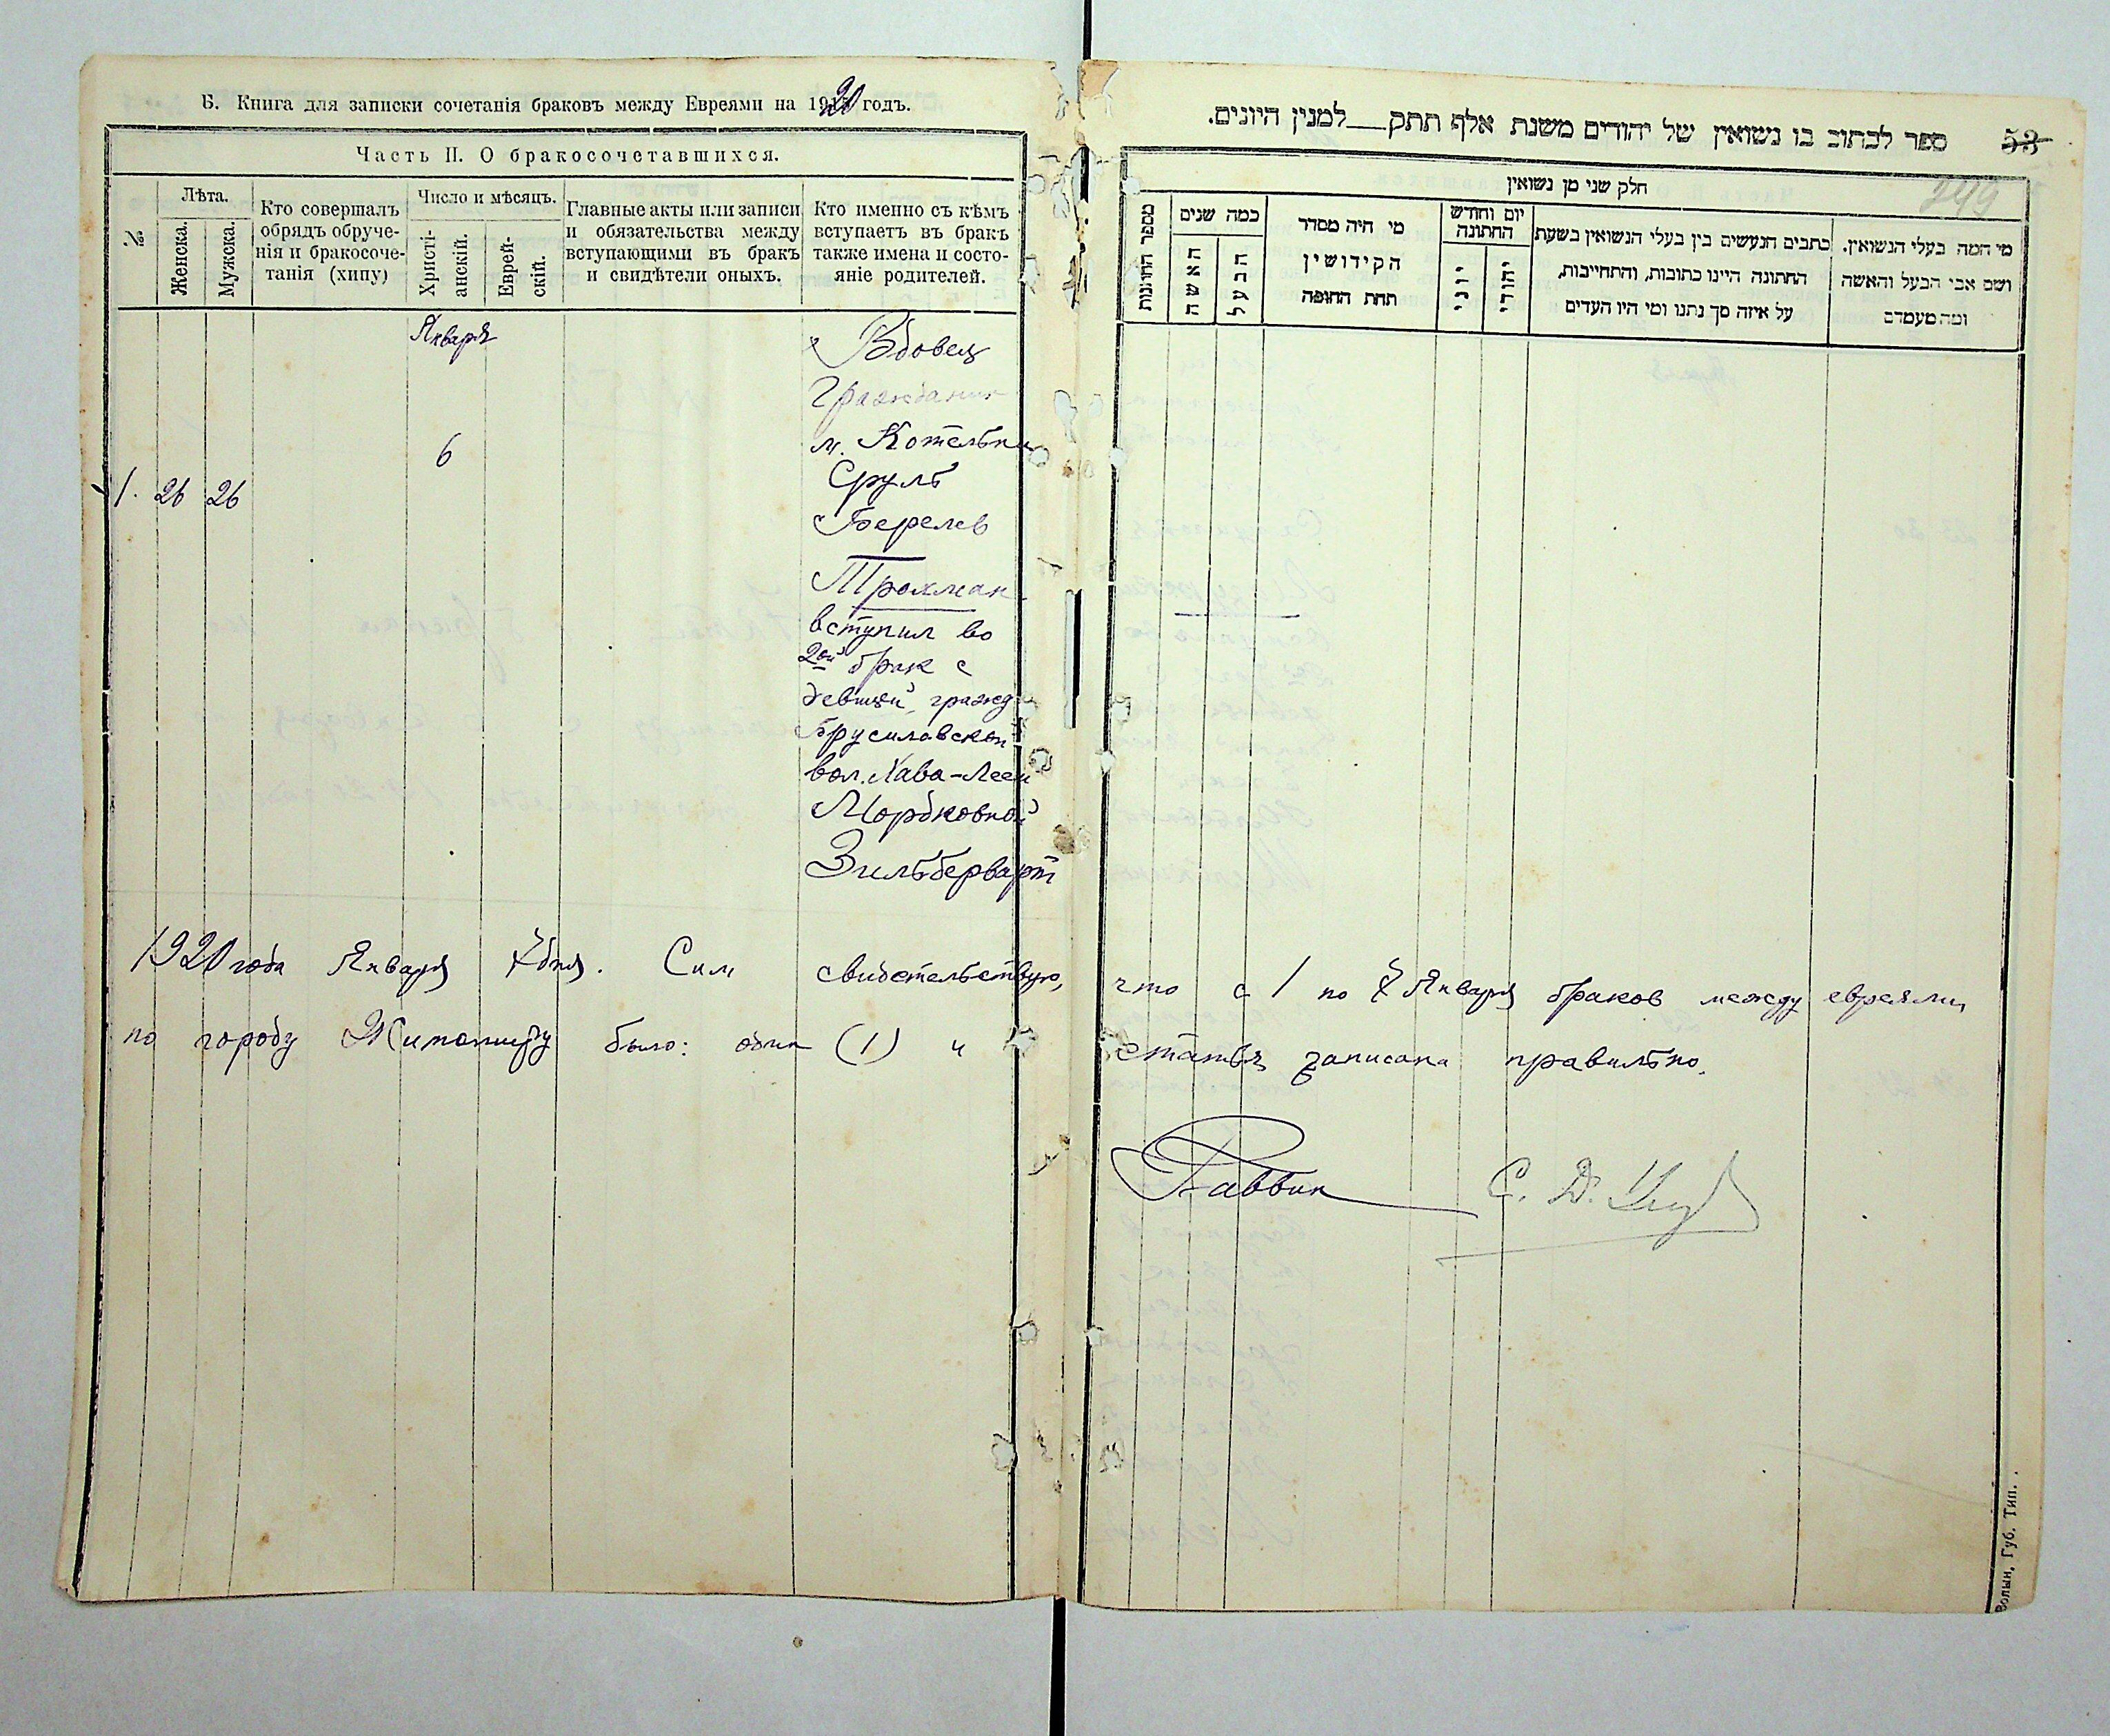 Б. Книга для записки сочетанія браковъ между Евреями на 1920 годъ.
Часть II. О бракосочетавшихся.
№
Лѣта.
Женска.
Мужска.
Кто совершалъ
обрядъ обруче-
нія и бракосоче-
танія (хипу)
Число и мѣсяцъ.
Христі-
анскій.
Еврей-
скій.
Главные акты или записи
и обязательства между
вступающими въ бракъ
и свидѣтели оныхъ.
Кто именно съ кѣмъ
вступаетъ въ бракъ
также имена и состо-
яніе родителей.
Января
6
1. 26 26
Вдовец
Гражданин
м. Котельни
Сруль
Берелев
Трахман
вступил во
2ой брак с
девицей, гражд
Брусиловской
вол. Хава-Леей
Мордковной
Зильберварт
ספר לכתוב בו נשואין של יהודים משנת אלף תתק__למנין היונים.
53
249
חלק שני מן נשואין
מספר החתונות
כמה שנים
האשה
הבעל
מי היה מסדר
הקידושין
תחת החופה
יום וחודש
החתונה
יוני
יהודי
כתבים הנעשים בין בעלי הנשואין בשעת
החתונה היינו כתובות, והתחייבות,
על איזה סך נתנו ומי היו העדים
מי המה בעלי הנשואין.
ושם אבי הבעל והאשה
ומה מעמדם
1920 года Января 7 дня. Сим свидетельствую, что с 1 по 7 Января браков между евреями,
по городу Житомиру было: один (1) и статья записана правильно.
Раввин С. Д.
Волын. Губ. Тип.